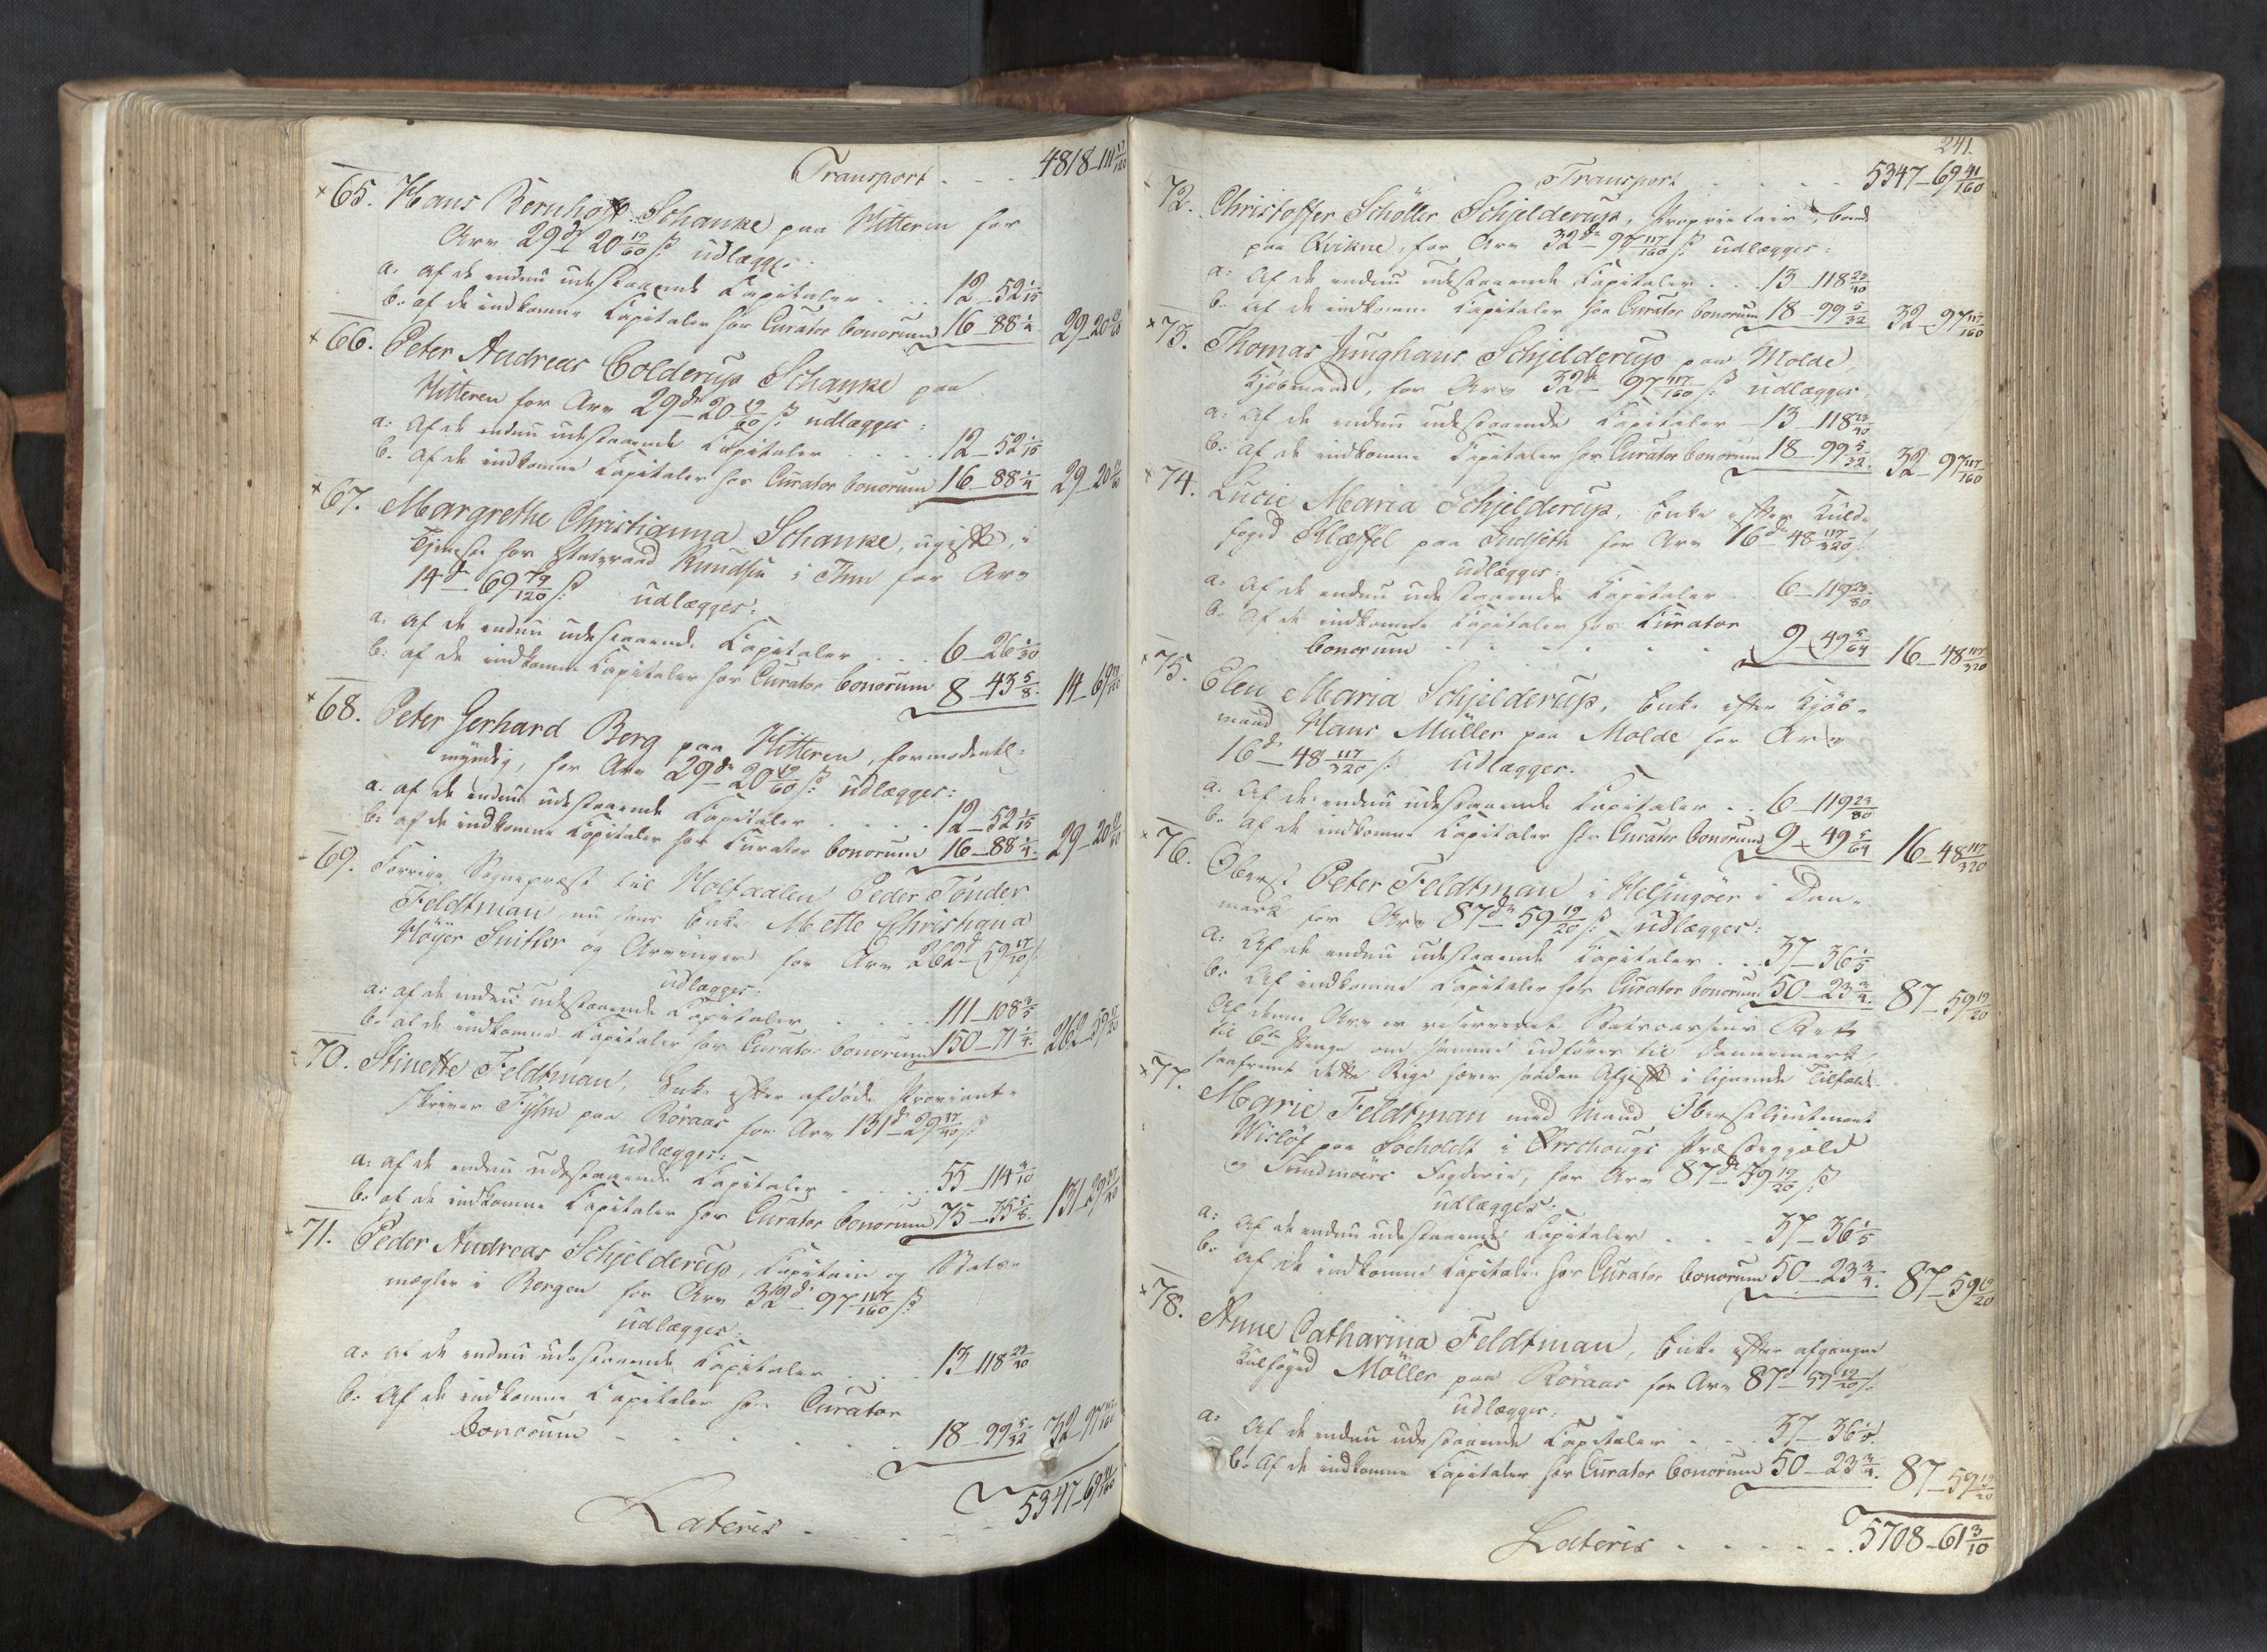 Transport . . . 4818-111 17/120
65. Hans Bernhoft Schanke paa Hitteren for
Arv 29 dr 20 19/60 ß udlægges:
a. af de endnu udestaaende Capitaler . . . 12-52 1/15
b. af de indkomne Capitaler hos Curator bonorum 16-88 1/4 29-20 19/60
66. Peter Andreas Colderup Schanke paa
Hitteren for Arv 29 dr 20 19/60 ß udlægges:
a: Af de endnu udestaaende Capitaler . . . . 12-52 1/15
b. Af de indkomne Capitaler hos Curator bonorum 16-88 1/4 29-20 19/60
67. Margrethe Christianna Schanke, ugift, i
Tjeneste hos Statsraad Knudsen i Thm for Arv
14 d 69 79/120 ß. udlægges:
a. af de endnu udestaaende Capitaler . . . 6-26 1/30
b: af de indkomne Capitaler hos Curator bonorum 8-43 5/8 14-69 79/120
68. Peter Gerhard Berg paa Hitteren, formodentl:
myndig, for Arv 29 dr 20 19/60 ß: udlægges:
a. af de endnu udestaaende Capitaler . . . . 12-52 1/15
b: af de indkomne Capitaler hos Curator bonorum 16-88 1/4 29-20 19/60
69. Forrige Sognepræst til Holtaalen Peder Tönder
Feldtman, nu hans Enke Mette Christiana
Höyer Snitler og Arvinger for Arv 262 d 59 17/20 ß
udlægges:
a: af de endnu udestaaende Capitaler . . . . . 111-108 3/5
b. af de indkomne Capitaler hos Curator bonorum 150-71 1/4 262-59 17/20
70. Stinette Feldtman, Enke efter afdöde Proviant-
skriver paa Röraas for Arv 131 d 29 37/40 ß
udlægges:
a: af de endnu udestaaende Capitaler . . . . 55-114 3/10
b. af de indkomne Capitaler hos Curator bonorum 75-35 5/8 131-29 37/40
71. Peder Andreas Schjelderup, Capitain og
mægler i Bergen for Arv 32 d 97 117/160 ß
udlægges:
a. af de endnu udestaaende Capitaler . . . 13-118 23/40
b. Af de indkomne Capitaler hos Curator
bonorum - - - - - - 18-99 5/32 32-97 117/160
Lateris - - - - 5347-69 41/160
241.
Transport . . . . 5347-69 41/160
72. Christoffer Schöller Schjelderup, Proprietair, boende
paa Qvikne, for Arv 32 dr 97 117/160 ß: udlægges:
a: Af de endnu udestaaende Capitaler . . . 13-118 23/40
b. Af de indkomne Capitaler hos Curator bonorum 18-99 5/32 32-97 117/160
73. Thomas Junghans Schjelderup paa Molde,
Kjöbmand, for Arv 32 d 97 117/160 ß: udlægges
a: Af de endnu udestaaende Capitaler - 13-118 23/40
b: af de indkomne Capitaler hos Curator bonorum 18-99 5/32 32-97 117/160
74. Lucie Maria Schjelderup, Enke efter Kuld-
foged Klæffel paa Indseth for Arv 16 d 48 117/320 ß
udlægges:
a: af de endnu udestaaende Capitaler . . 6-119 23/80
b. Af de indkomne Capitaler hos Curator
bonorum - . . . . . 9-49 5/64 16-48 117/320
75. Elen Maria Schjelderup, Enke efter Kjöb-
mand Hans Müller paa Molde for Arv
16 d 48 117/320 ß: udlægges.
a. Af de endnu udestaaende Capitaler . . 6-119 23/80
b. Af de indkomne Capitaler hos Curator bonorum 9-49 5/64 16-48 117/320
76. Oberst Peter Feldtman i Helsingöer i Dan-
mark for Arv 87 dr 59 19/20 ß: udlægges:
a: Af de endnu udestaaende Capitaler . . . 37-36 1/5
b. Af indkomne Capitaler hos Curator bonorum 50-23 3/4 87-59 19/20
Af denne Arv er reserveret Statscassens Ret
til 6te Penge om samme udföres til Dannemark,
saafremt dette Rige hæver saadan Afgift i lignende Tilfælde.
77. Marie Feldtman med Mand Oberstlieutenant
Wislöf paa Soeholdt i Örschougs Præstegjæld
og Sundmöers Fogderie, for Arv 87 d 59 19/20 ß
udlægges:
a: Af de endnu udestaaende Capitaler . . . 37-36 1/5
b. Af de indkomne Capitaler hos Curator bonorum 50-23 3/4 87-59 19/20
78. Anne Catharina Feldtman, Enke efter afgangne
Kulfoged Möller paa Röraas for Arv 87 d 59 19/20 ß
udlægges:
a: Af de endnu udestaaende Capitaler . . . 37-36 1/5
b. Af de indkomne Capitaler hos Curator bonorum 50-23 3/4 87-59 19/20
Lateris . . . . . 5708-61 3/10